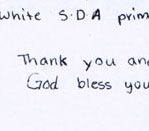 white S.D.A prim
Thank you an
God bless you